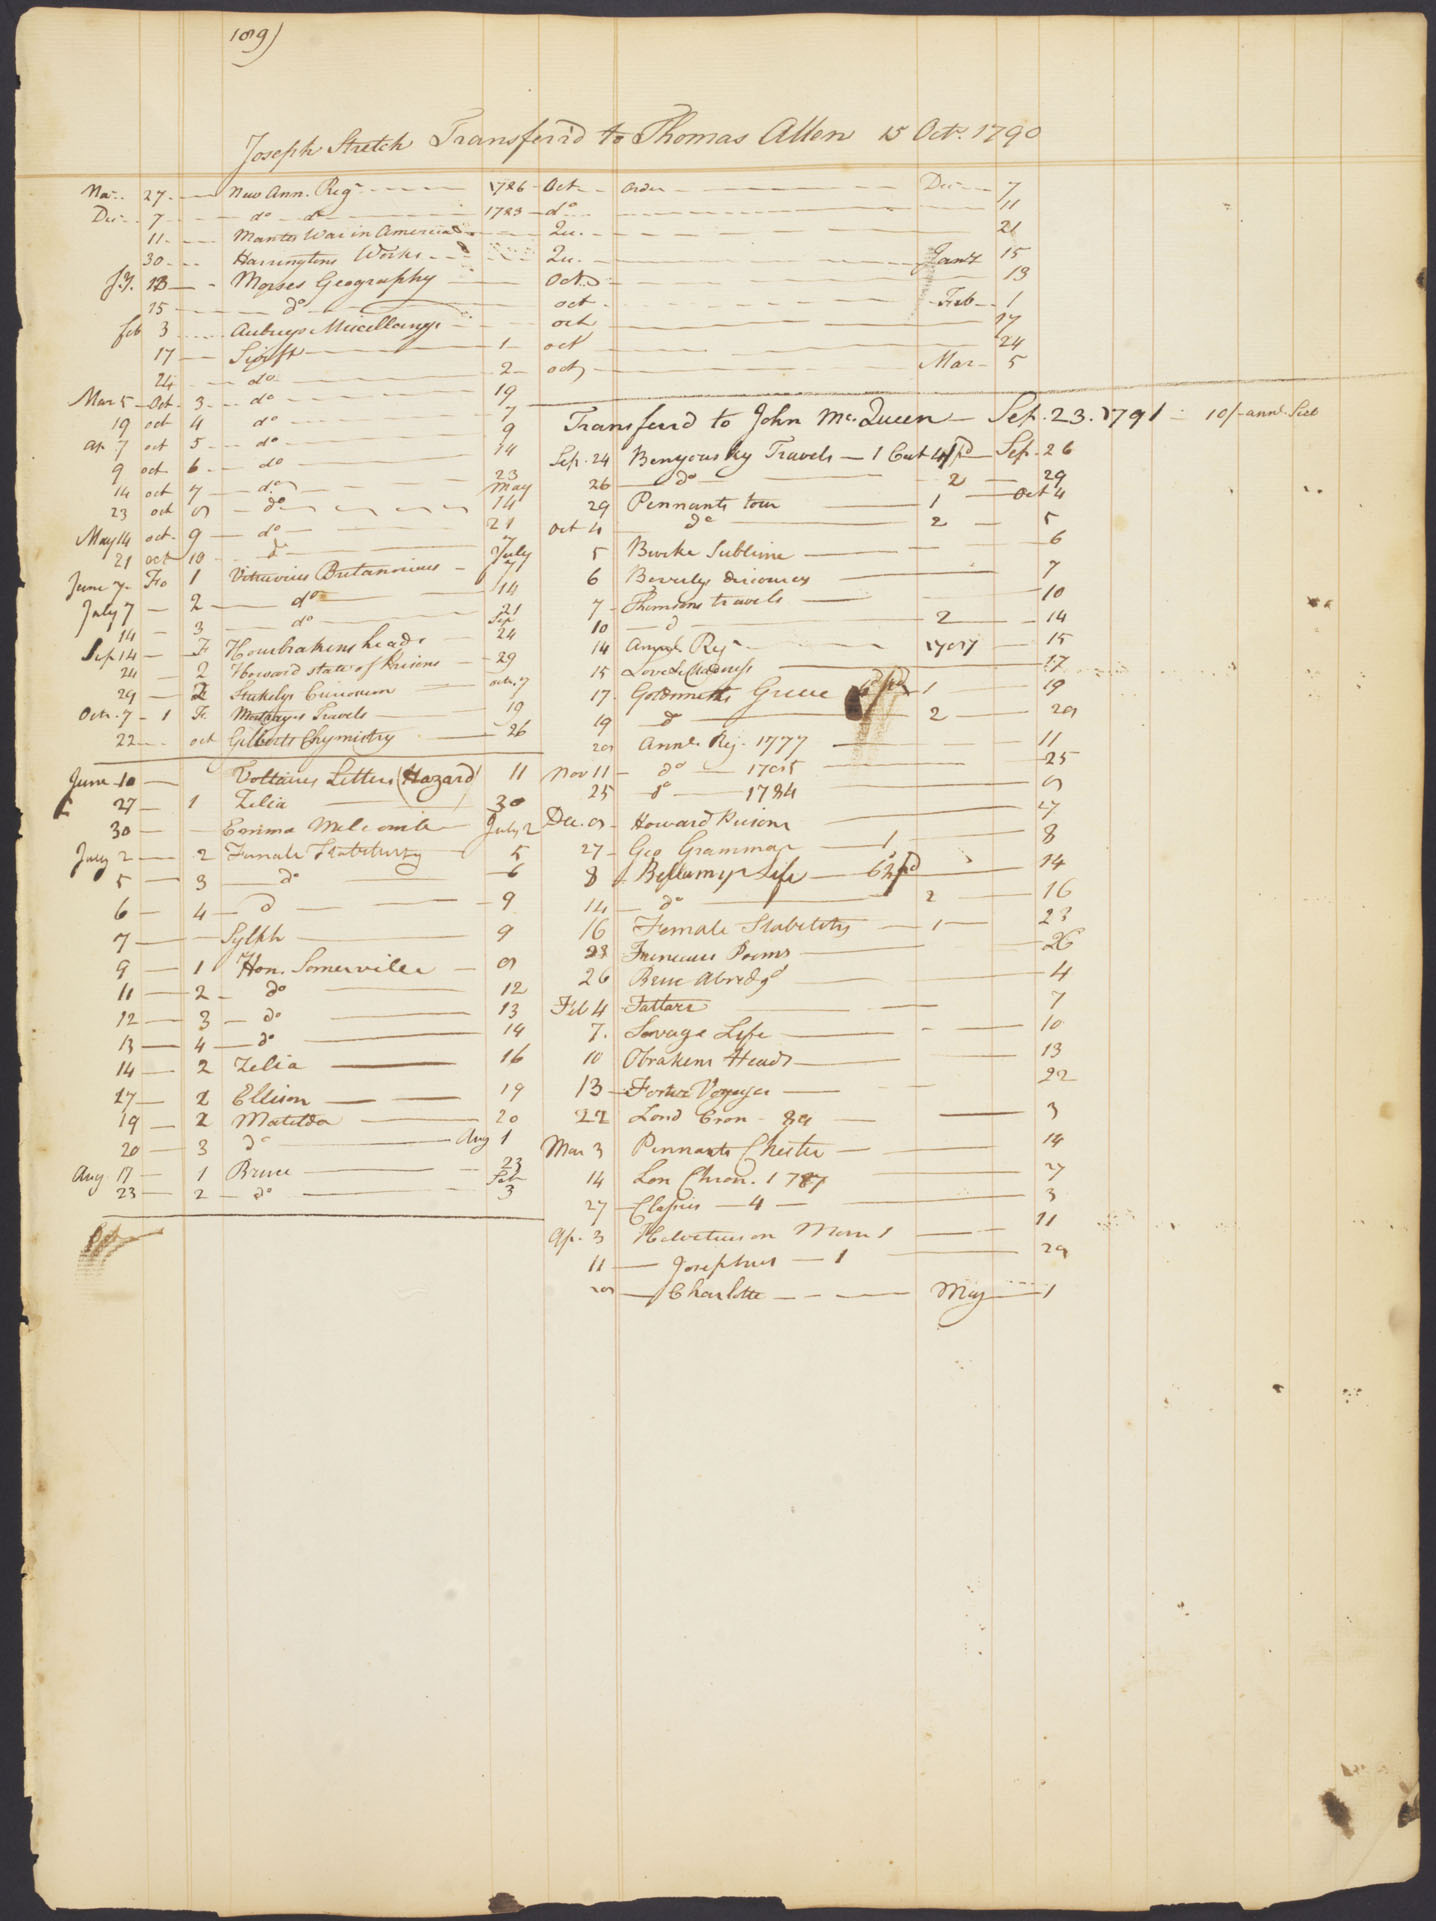 189)
Joseph Stretch Transferr'd to Thomas Allen 15 Octr. 1790
27 New Ann. Regr 1786 Oct Order Decr 7
Dec 7 do do 1783 do 11
11 Mantes War in America Qu. 21
30 Harringtons Works Qu. Jany 15
Jy. 13 Morses Geography Oct. 13
15 do oct Feb 1
Feb 3 Aubreys Miscellanys oct 17
17 Swift 1 oct 24
24 do 2 oct Mar 5
Mar 5 Oct 3 do 19
19 oct 4 do 7
Ap. 7 oct 5 do 9
9 oct 6 do 14
14 oct 7 do 23
23 oct 8 do May 14
May 14 oct 9 do 21
21 oct 10 do 7
June 7 Fo 1 Vitruvius Britannicus July 7
July 7 2 do 14
14 3 do 21
Sep 14 F Houbrakens heads Sep 24
24 2 Howard state of Prisons 29
29 2 Stukelys octr. 7
Octr. 7 1 F. Travels 19
22 oct Gilberts Chymistry 26
June 10 Voltaires Letters (Hazard) 11
27 1 Zelia 30
30 Emma Melcombe July 2
July 2 2 Female Stability 5
5 3 do 6
6 4 do 9
7 Sylph 9
9 1 Hon. Somerville 8
11 2 do 12
12 3 do 13
13 4 do 14
14 2 Zelia 16
17 2 Ellison 19
19 2 Matilda 20
20 3 do Aug 1
Aug. 17 1 Bruce 23
23 2 do Sep 3
Transferrd to John McQueen Sep. 23. 1791 10/- annl Sub
Sep. 24 Benyousky Travels 1 Sep. 26
26 do 2 29
29 Pennants tour 1 Oct 4
Oct 4 do 2 5
5 Burke Sublime 6
6 Beverlys discourses 7
7 Thomsons travels 10
10 do 2 14
14 Annual Regr 1787 15
15 Love & Madness 17
17 Goldsmiths Greece 1 19
19 do 2 28
28 Annl. Reg. 1777 11
Nov 11 do 1785 25
25 do 1784 8
Dec. 8 Howard Prisons 27
27 Geo Grammar 1 8
8 Bellamys Life 14
14 do 2 16
16 Female Stability 1 23
23 Freneaus Poems 26
26 Bruc Abredgd 4
Feb 4 Tatlers 7
7. Savage Life 10
10 Obrakens Heads 13
13 Voyages 22
22 Lond Cron 88 3
Mar 3 Pennants Chester 14
14 Lon Chron. 1787 27
27 Classics 4 3
Ap. 3 Helvetius on Man 1 11
11 Josephus 1 28
28 Charlotte May 1